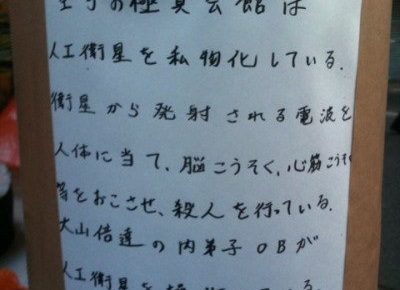 の極真会館は
人工衛星を私物化している.
衛星から発射される電波を
人体に当て、脳こうそく、心筋こうそく
等をおこさせ、殺人を行っている.
大山倍達の内弟子OBが
人工衛星を